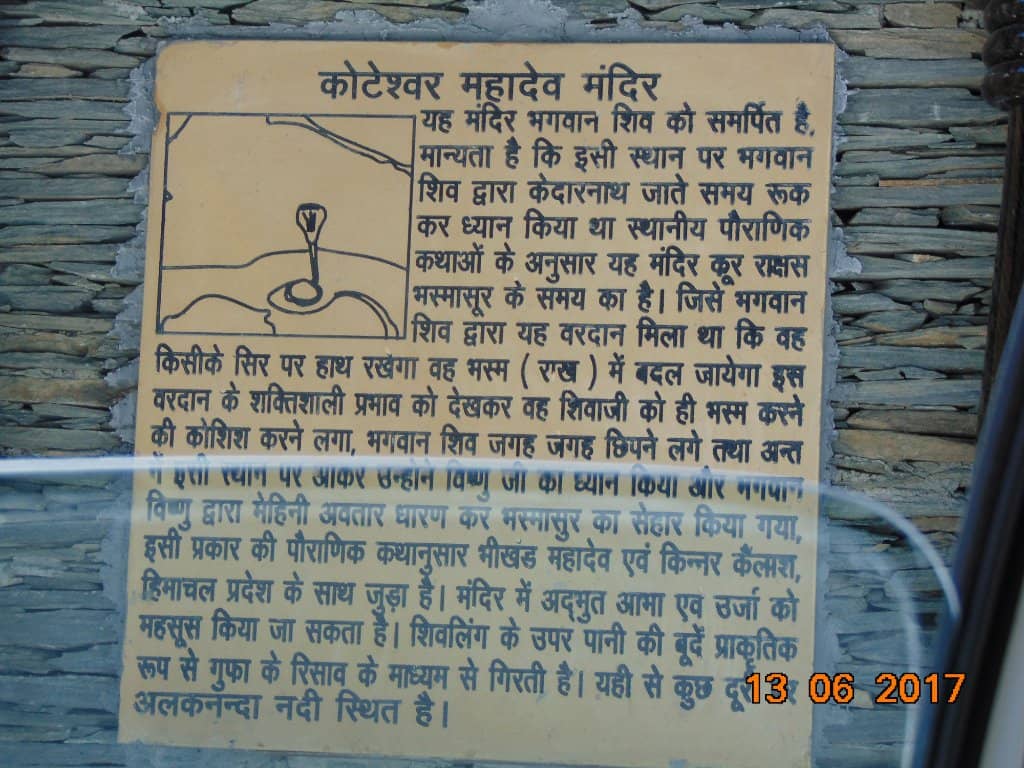 कोटेश्वर महादेव मंदिर
यह मंदिर भगवान शिव को समर्पित है,
मान्यता है कि इसी स्थान पर भगवान
शिव द्वारा केदारनाथ जाते समय रूक
कर ध्यान किया था स्थानीय पौराणिक
कथाओं के अनुसार यह मंदिर कूर राक्षस
भस्मासूर के समय का है। जिसे भगवान
शिव द्वारा यह वरदान मिला था कि वह
किसीके सिर पर हाथ रखेगा वह भस्म ( राख ) में बदल जायेगा इस
वरदान के शक्तिशाली प्रभाव को देखकर वह शिवाजी को ही भस्म करने
की कोशिश करने लगा, भगवान शिव जगह जगह छिपने लगे तथा अन्त
में इसी स्थान पर आकर उन्होने विष्णु जी का ध्यान किया और भगवान
विष्णु द्वारा मेहिनी अवतार धारण कर भस्मासुर का सेहार किया गया,
इसी प्रकार की पौराणिक कथानुसार भीखंड महादेव एवं किन्नर कैलाश,
हिमाचल प्रदेश के साथ जुड़ा है। मंदिर में अद्भुत आभा एव उर्जा को
महसूस किया जा सकता है। शिवलिंग के उपर पानी की बूदें प्राकृतिक
रूप से गुफा के रिसाव के माध्यम से गिरती है। यही से कुछ
अलकनन्दा नदी स्थित है।
13 06 2017